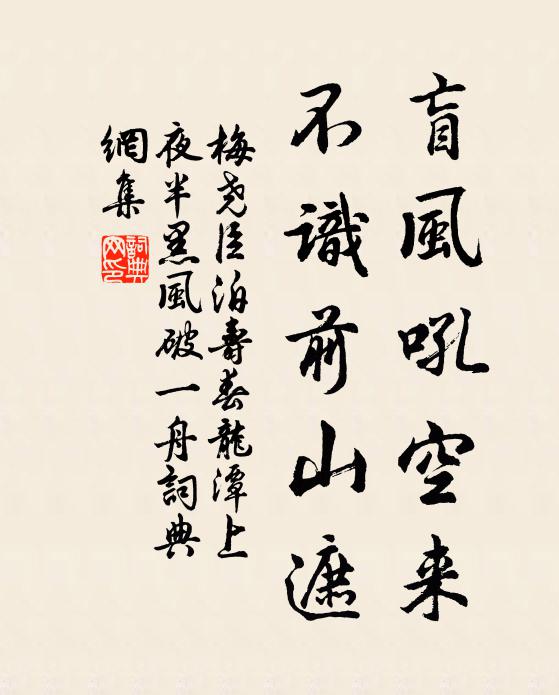 盲風吼空来
不識前山遮
梅尧臣泊壽春龍潭上
夜半黑風破一舟詞典
網集
詞典
网印